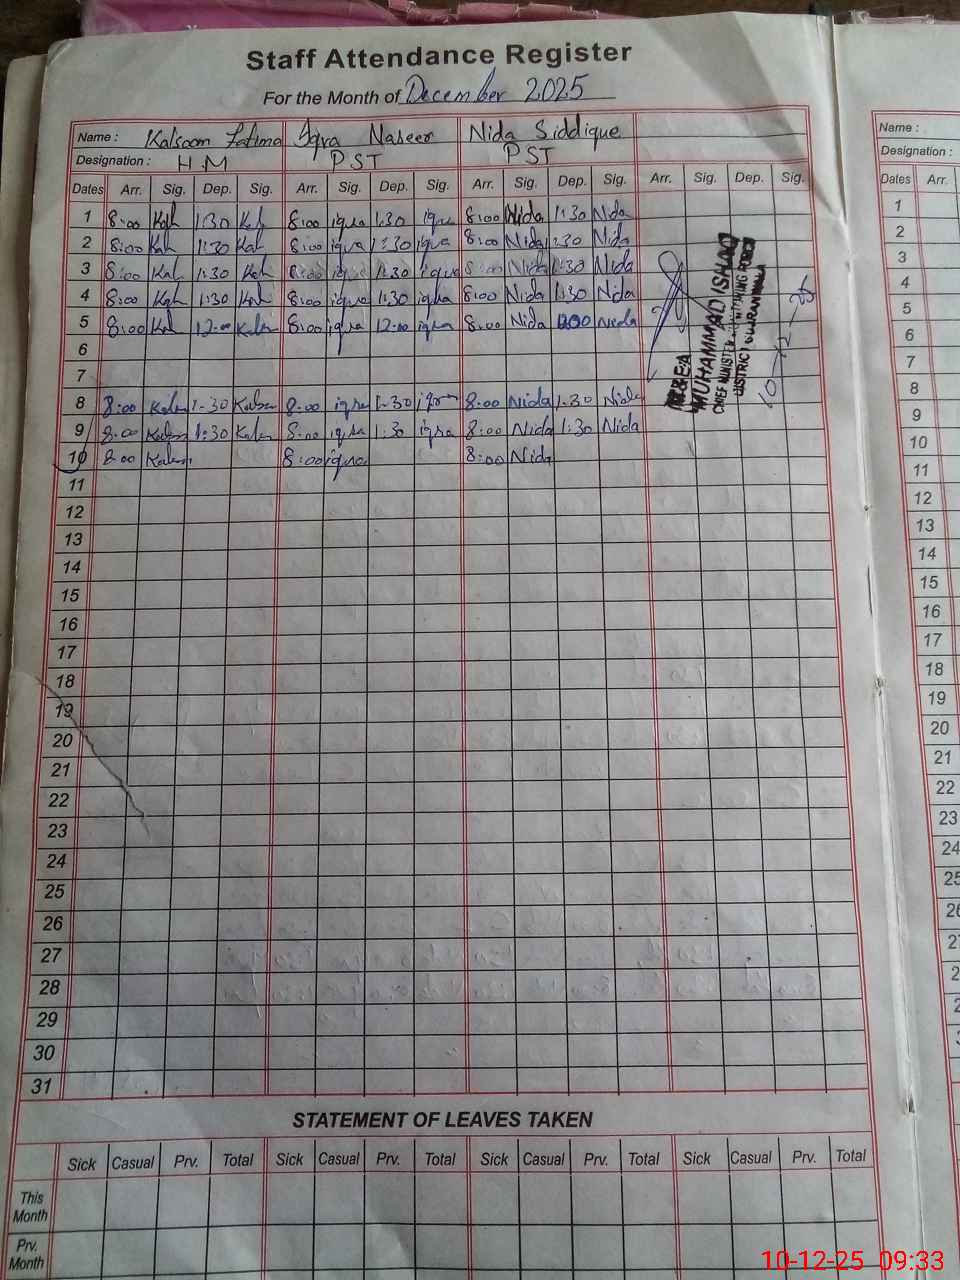 Staff Attendance Register
For the Month of December 2025
Name : Kalsoom Fatima Iqra Naseer Nida Siddique
Designation : H.M PST PST
Dates Arr. Sig. Dep. Sig. Arr. Sig. Dep. Sig. Arr. Sig. Dep. Sig. Arr. Sig. Dep. Sig.
1 8:00 Kal 1:30 Kal 8:00 iqra 1:30 iqra 8:00 Nida 1:30 Nida
2 8:00 Kal 1:30 Kal 8:00 iqra 1:30 iqra 8:00 Nida 1:30 Nida
3 8:00 Kal 1:30 Kal 8:00 iqra 1:30 iqra 8:00 Nida 1:30 Nida
4 8:00 Kal 1:30 Kal 8:00 iqra 1:30 iqra 8:00 Nida 1:30 Nida
5 8:00 Kal 12:00 Kalsm 8:00 iqra 12:00 iqra 8:00 Nida 1200 Nida
6
7
8 8:00 Kalsm 1:30 Kalsm 8:00 iqra 1:30 iqra 8:00 Nida 1:30 Nida
9 8:00 Kalsm 1:30 Kalsm 8:00 iqra 1:30 iqra 8:00 Nida 1:30 Nida
10 8:00 Kalsm 8:00 iqra 8:00 Nida
11
12
13
14
15
16
17
18
19
20
21
22
23
24
25
26
27
28
29
30
31
MUHAMMAD ISHAQ
CHIEF MINISTER
DISTRICT GUJRANWALA
10-12-25
STATEMENT OF LEAVES TAKEN
Sick Casual Prv. Total Sick Casual Prv. Total Sick Casual Prv. Total Sick Casual Prv. Total
This
Month
Prv.
Month
Name :
Designation :
Dates Arr.
1
2
3
4
5
6
7
8
9
10
11
12
13
14
15
16
17
18
19
20
21
22
23
24
25
10-12-25 09:33